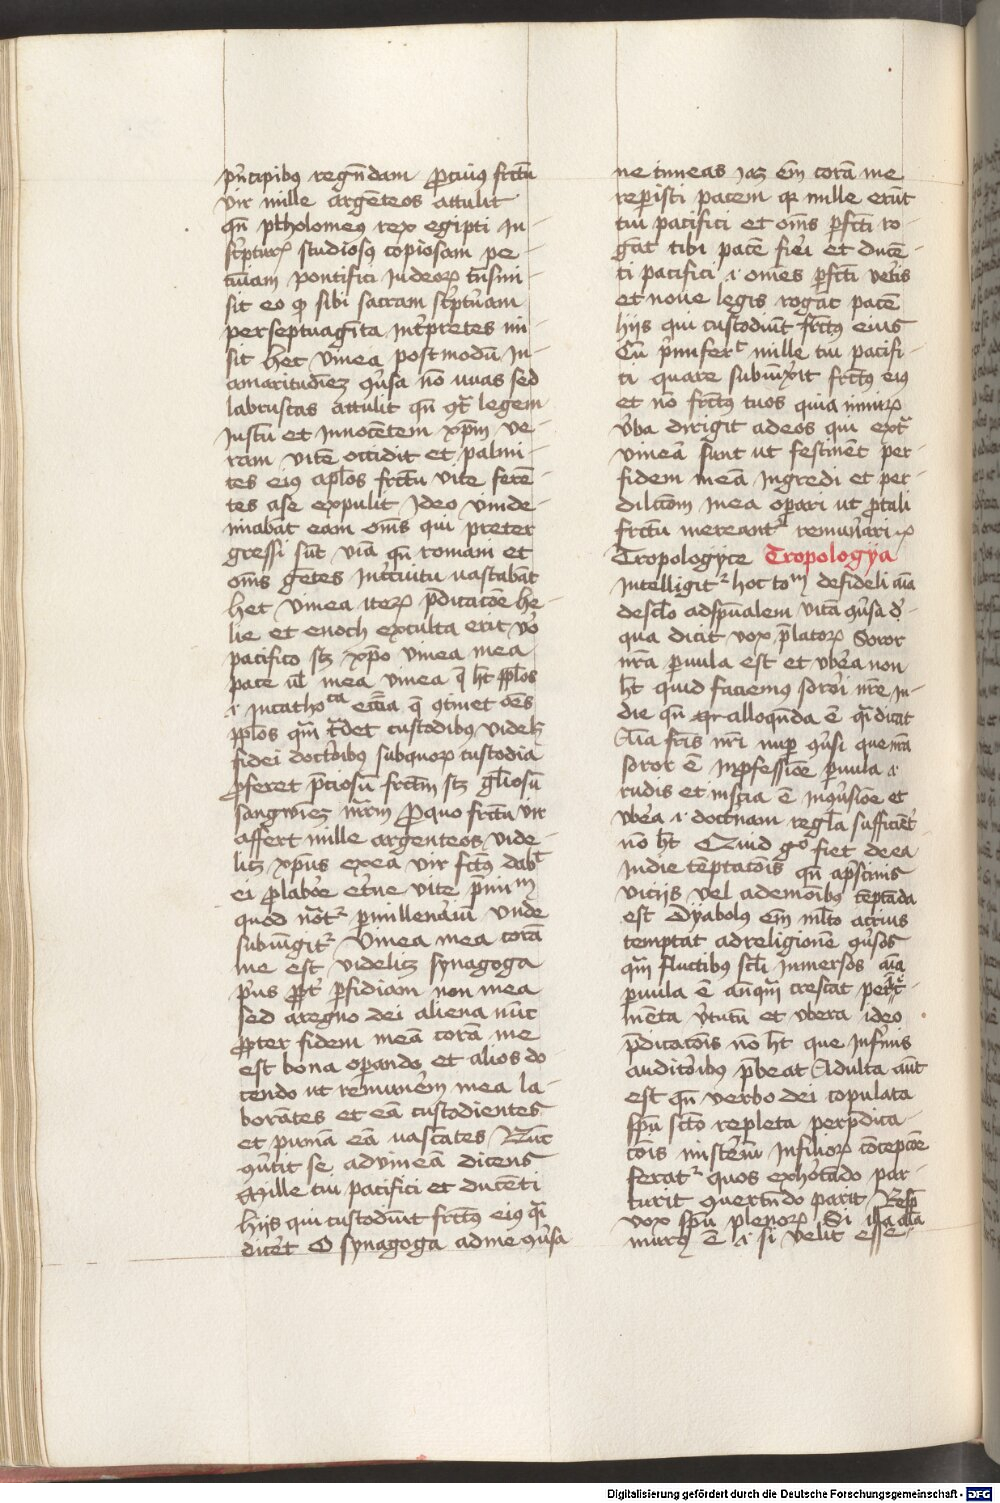 pͥncipibus regn̄dam Pro cuiꝰ fructu
vir mille argēteos attulit
qn̄ ptholomeus rex egipti in-
sc̓pturaꝝ studiosꝰ copiosam pe-
cuniam pontifici iudeoꝝ t̄nsmi-
sit eo ꝙ sibi sacram sc̓pturam
per septuaginta int̓pretes mi-
sit Hec vinea postmodū in
amaritudinē ꝯv̓sa nō uuas sed
labruscas attulit qn̄ ꝯtra legem
iustū et innocētem xp̄m ve-
ram vitē occidit et palmi-
tes eiꝰ apl̄os fructū vite ferē-
tes a se expulit Ideo vinde-
miabāt eam oms̄ qui preter
gressi sūt viā qn̄ romani et
oms̄ gētes in circuitu vastabāt
hec vinea iteꝝ p̄dicatōe he-
lie et enoch exculta erit vō
pacifico sꝫ xp̄o vinea mea
pace vl̄ mea vinea q̄ hꝫ ppl̄os
.i. in catholica eccl̄ia q̄ ꝯtinet oēs
ppl̄os quā tradet custodibꝰ videlꝫ
fidei doctoribꝰ sub quoꝝ custodia
ꝓferet p̄ciosū fructū sꝫ gl̄iosū
sangwinē mr̄m Pro quo fructu vir
affert mille argenteos vide-
licꝫ xp̄us ex ea vir fctꝰ dabit
ei ꝓ labore et̓ne vite p̄miū
quod notatur ꝑ millenariū Vnde
subiungitur Vinea mea corā
me est videlicꝫ synagoga
pͥus ꝓpter ꝑfidiam non mea
sed a regno dei aliena nūc
ꝓpter fidem meā corā me
est bona oꝑando et alios do-
cendo ut remunerem mea la-
borātes et eā custodientes
et puniā eā vastātes Nūc
ꝯv̓tit se ad vineā dicens
Mille tui pacifici et ducēti
hijs qui custodiūt fructꝰ eiꝰ q̄i
dic̓et O synagoga ad me ꝯv̓sa
ne timeas iaꝫ em̄ corā me
reꝑisti pacem qꝛ mille erūt
tui pacifici et oms̄ ꝑfcti ro-
gāt tibi pacē fieri et ducē-
ti pacifici .i. omēs ꝑfcti vet̓is
et noue legis rogāt pacē
hijs qui custodiūt fructꝰ eius
Cū pͥmu fertur mille tui pacifi-
ci quare subiūxit fructꝰ eiꝰ
et nō fructꝰ tuos quia
v̓ba dirigit ad eos qui extra
vineā sunt ut festinēt per
fidem meā ingredi et per
dil̄cōm mea oꝑari ut ꝓ tali
fructu mereantur remun̓ari
Tropologyce Tropologya
Intelligitur hoc totū de fideli aīa
de scl̄o ad sp̄ualem vitā ꝯv̓sa de
qua dicit vox p̄latoꝝ Soror
nr̄a ꝑuula est et vbera non
hꝫ quid faciemus sorori nr̄e in
die qn̄ alloquēda ē q̄i dicat
Aīa fr̄is nr̄i nuꝑ ꝯv̓si que nr̄a
soror ē in ꝓfessiōe ꝑuula .i.
rudis et inscia ē in ꝯv̓siōe et
vbera .i. doctrinam regl̄a sufficiēt̓
nō hꝫ Quid gͦ fiet de ea
in die tēptacōis qn̄ a pristinis
vicijs vel a demōibus tēptāda
est Dyabolus em̄ ml̄to acrius
temptat ad religionē ꝯv̓sos
quā fluctibus scl̄i inmersos aīa
ꝑuula ē anquā crescat ꝑ incr̄-
menta v̓tutū et vbera ideo
p̄dicacōis nō hꝫ que infirmis
auditoribus p̄beat Adulta aūt
est qn̄ verbo dei copulata
sp̄u scō repleta per p̄dica-
cōis minist̓iū in filioꝝ cōcepcōe
feratur quos exhortādo par-
turit ꝯuertēdo parit Resp̄
vox sp̄u plenoꝝ Si illa aīa
murus ē .i. si velit esse
Digitalisierung gefördert durch die Deutsche Forschungsgemeinschaft - DFG